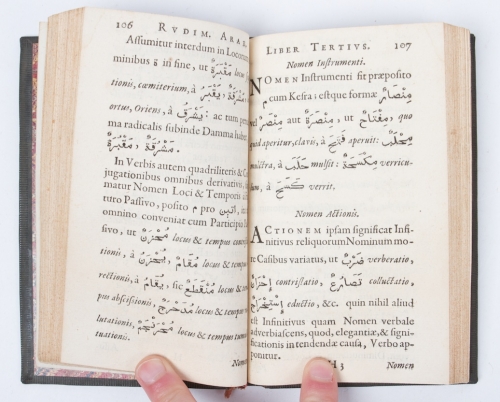 106 RVDIM. ARAB.
Assumitur interdum in Locorum
minibus ة in fine, ut مَقْبَرَةٌ locus
tionis, cœmiterium, à يَقْبُرُ، مَشْرَقَةٌ
ortus, Oriens, à يَشْرُقُ: ac tum penul
ma radicalis subinde Damma habet,
مَشْرُقَةٌ، مَقْبُرَةٌ.
In Verbis autem quadriliteris & C
jugationibus omnibus derivativis,
matur Nomen Loci & Temporis
turo Passivo, posito م pro اتين, ut
omnino conveniat cum Participio
sivo, ut مُحْزَنٌ locus & tempus con
tionis, à يُحْزَنُ, مُقَامٌ locus & tempus
rectionis, à يُقَامُ, sic مُنْقَطَعٌ locus
pus abscissionis, مُدَحْرَجٌ locus & tempus
lutationis, مُحْرَنْجَمٌ locus & tempus
tuationis.
Nomen
LIBER TERTIVS. 107
Nomen Instrumenti.
NOMEN Instrumenti fit præposito
م cum Kesra: estque formæ مِنْصَارٌ
vel مِنْصَرٌ aut مِنْصَرَةٌ, ut مِفْتَاحٌ, quo
quid aperitur, clavis, à فَتَحَ aperuit: مِحْلَبٌ
mulctra, à حَلَبَ mulsit: مِكْسَحَةٌ verricu-
lum, à كَسَحَ verrit.
Nomen Actionis.
ACTIONEM ipsam significat Infi-
nitivus reliquorum Nominum mo-
re Casibus variatus, ut ضَرْبٌ verberatio,
إِحْزَانٌ contristatio, تَصَارُعٌ colluctatio,
إِسْتِخْرَاجٌ eductio, &c. quin nihil aliud
est Infinitivus quam Nomen verbale
adverbiascens, quod, elegantiæ, & signi-
ficationis intendendæ causa, Verbo ap-
ponitur.
H 3 Nomen